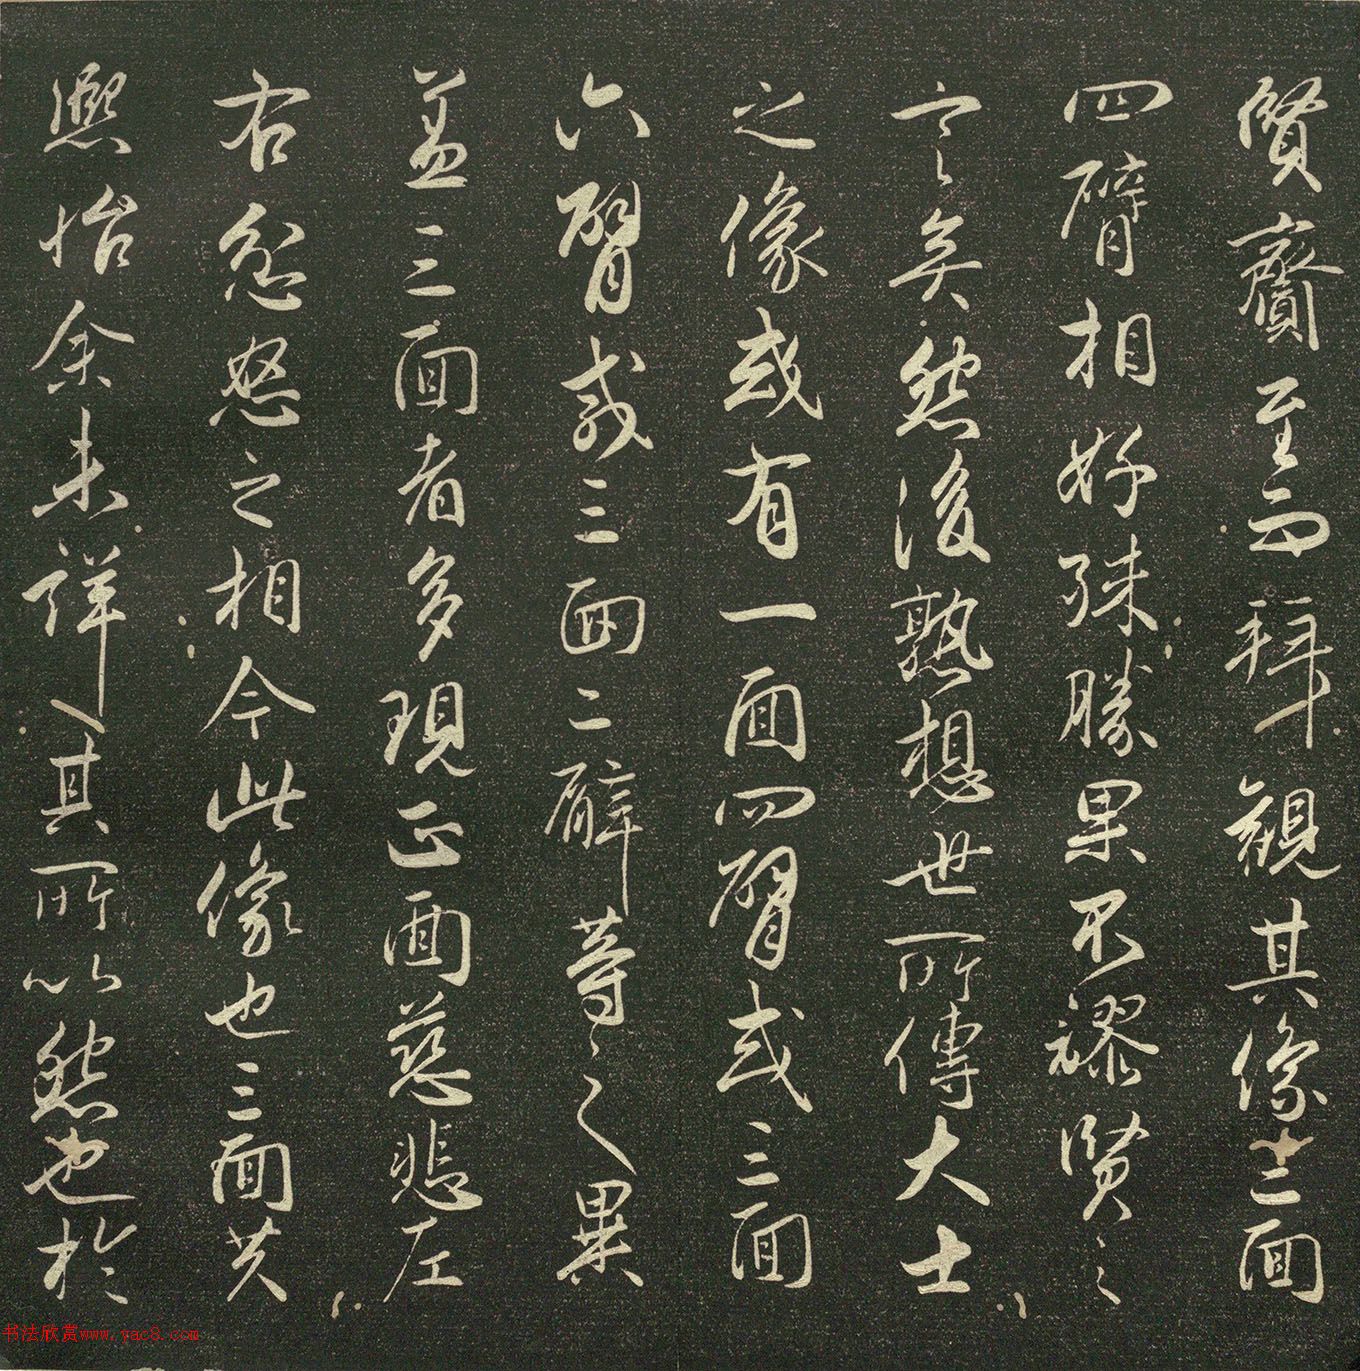 賢齎至而拜觀其像三面
四臂相好殊勝果不謬賢之
言矣然後熟想世所傳大士
之像或有一面四臂或三面
六臂或三面二臂等之異
蓋三面者多現正面慈悲左
右忿怒之相今此像也三面共
熙怡余未詳其所以然也於
书法欣赏www.yac8.com